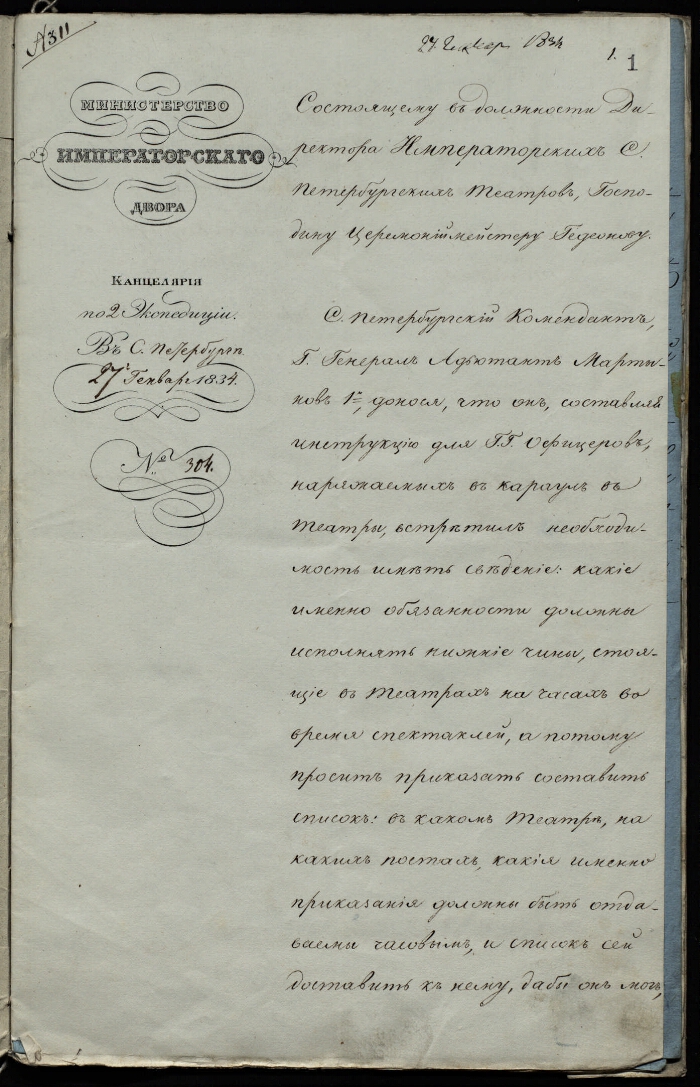 А311
27 Генвар 1834
1.
1
МИНИСТЕРСТВО
ИМПЕРАТОРСКАГО
ДВОРА
КАНЦЕЛЯРІЯ
по 2 Экспедиціи.
Въ С. Петербургѣ
27 Генваря 1834.
№ 304.
Состоящему въ должности Ди-
ректора Императорскихъ С.
Петербургскихъ Театровъ, Госпо-
дину Церемоніймейстеру Гедеонову.
С. Петербургскій Комендантъ,
Г. Генералъ Адъютантъ Марты-
новъ 1й, донося, что онъ, составляя
инструкцію для ГГ. Офицеровъ,
наряжаемыхъ въ караулъ въ
Театры, встрѣтилъ необходи-
мость имѣть свѣденіе: какіе
именно обязанности должны
исполнять нижніе чины, стоя-
щіе въ Театрахъ на часахъ во
время спектаклей, а потому
проситъ приказать составить
списокъ: въ какомъ Театрѣ, на
какихъ постахъ, какія именно
приказанія должны быть отда-
ваемы часовымъ, и списокъ сей
доставить къ нему, дабы онъ могъ,